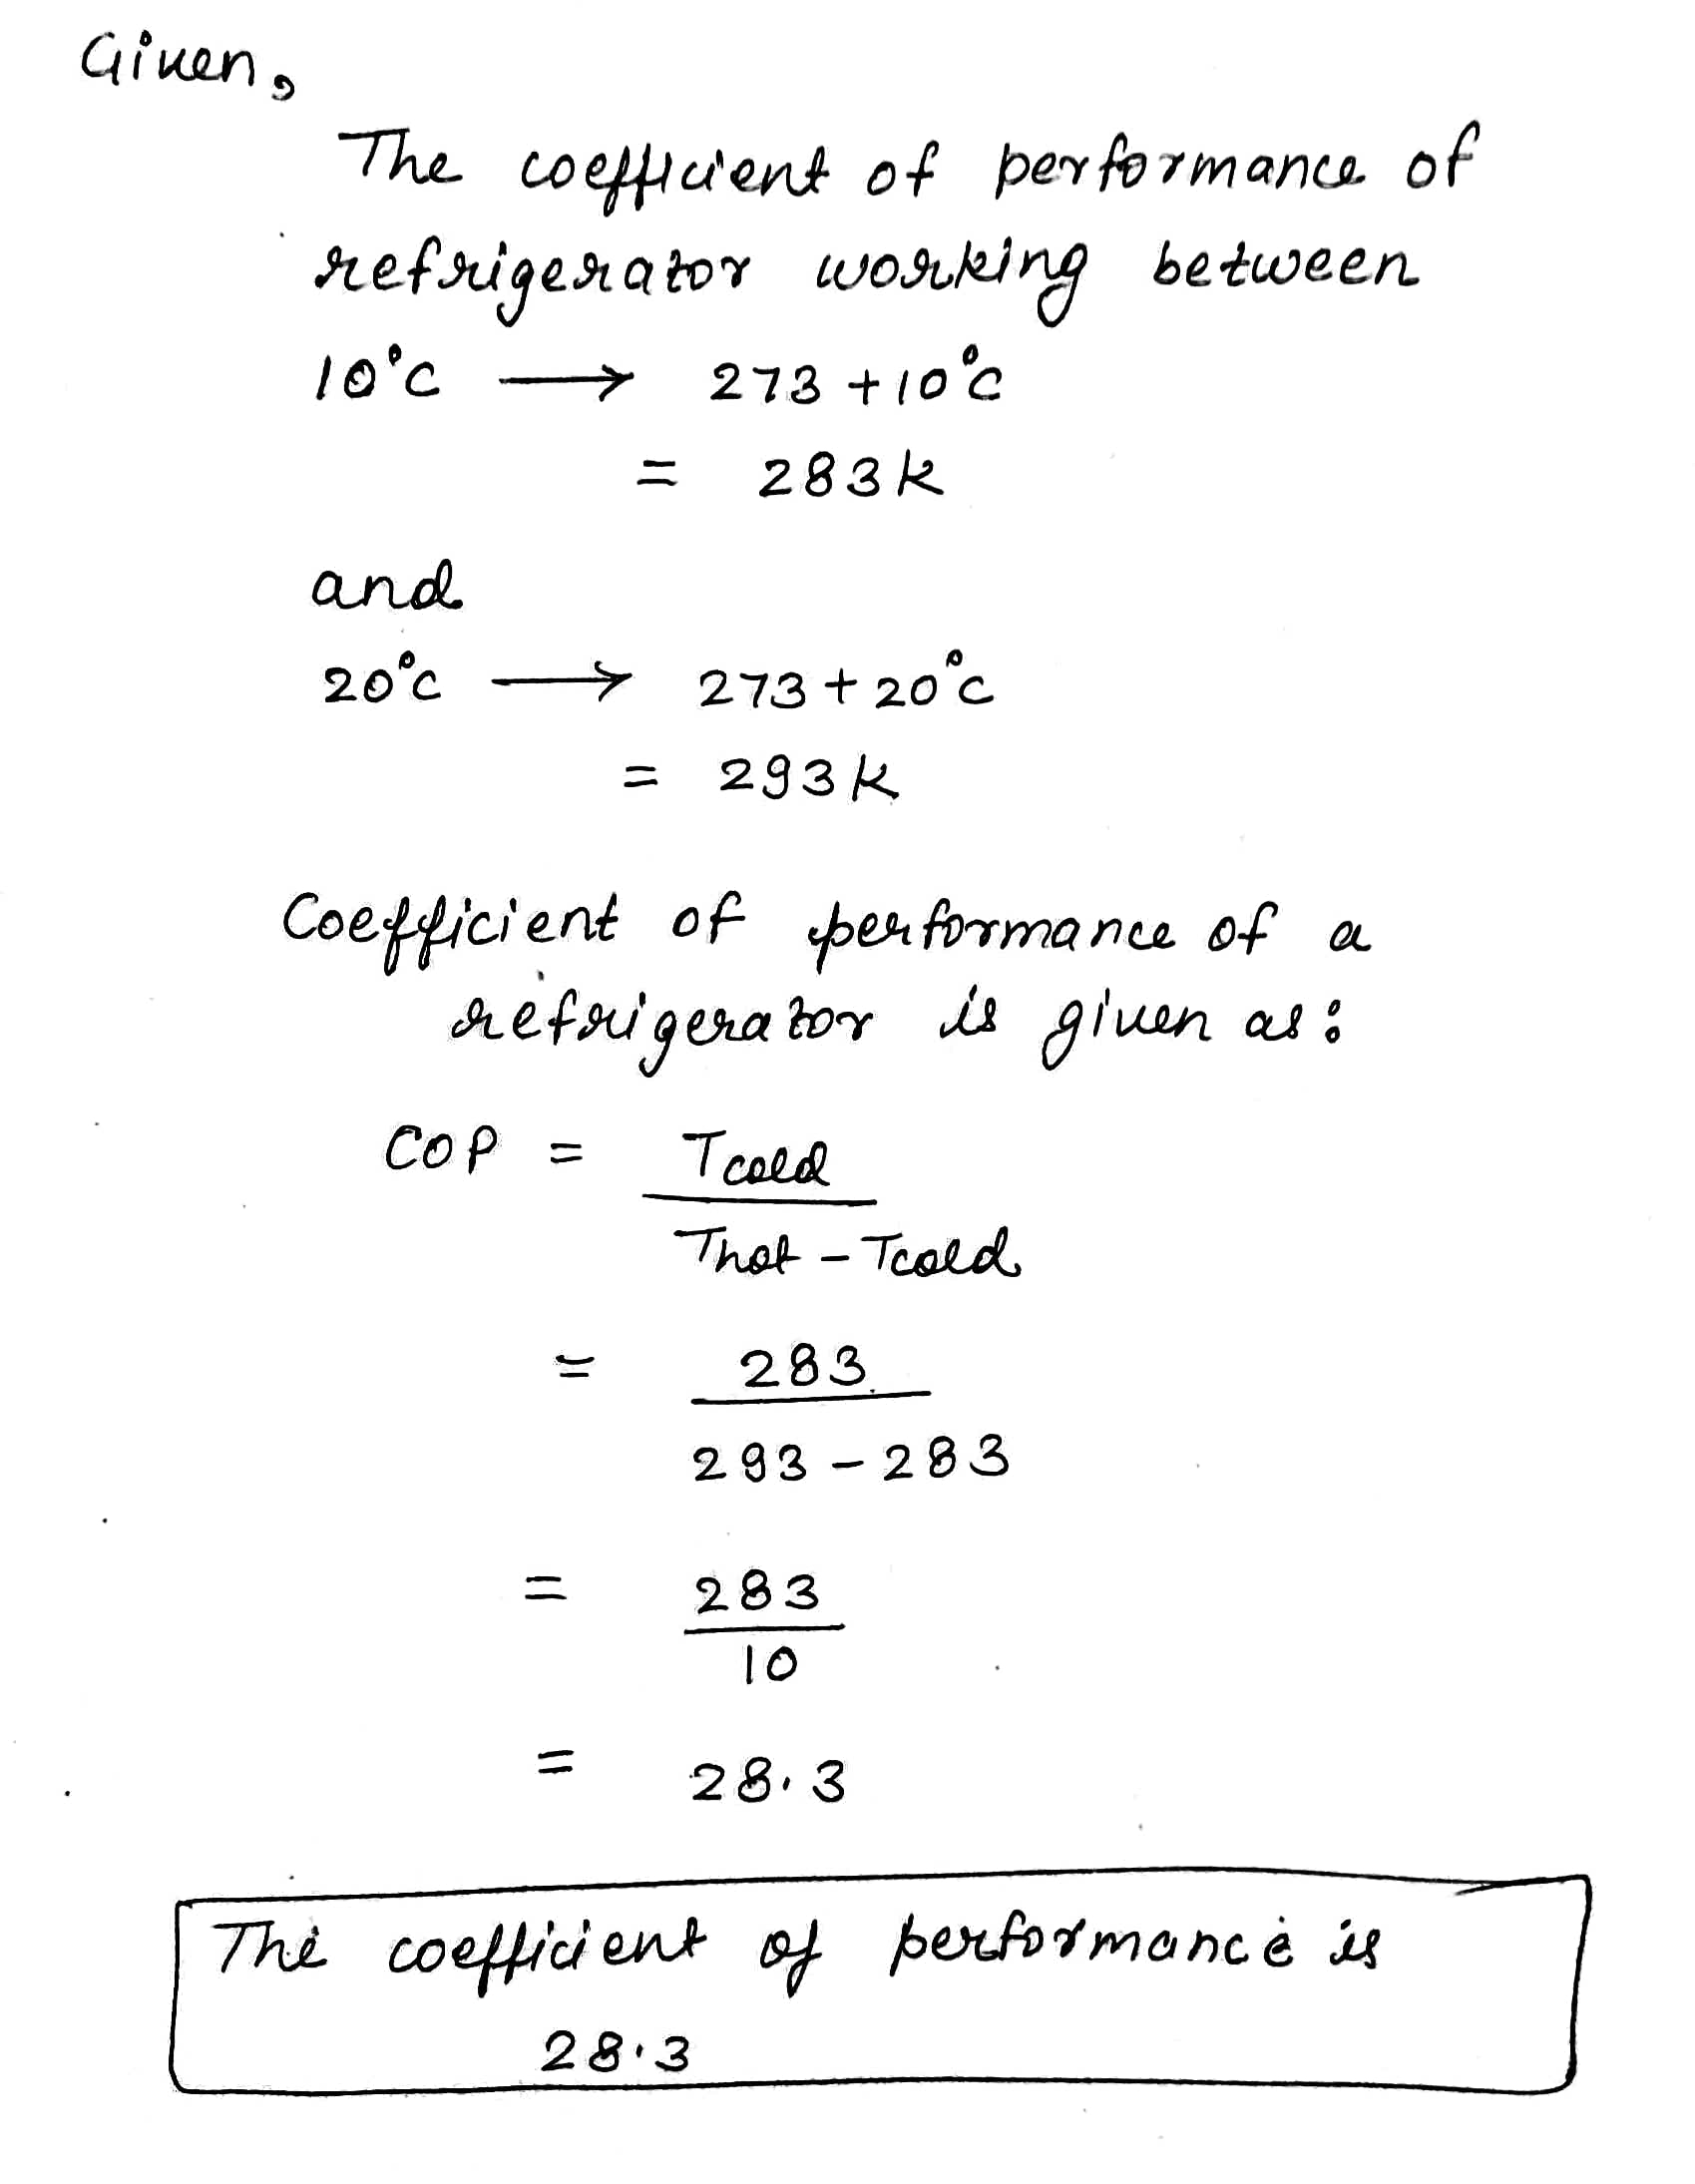 Given,
The coefficient of performance of
refrigerator working between
10°C → 273 + 10°C
= 283K
and
20°C → 273 + 20°C
= 293K
Coefficient of performance of a
refrigerator is given as:
COP = Tcold
Thot - Tcold
= 283
293 - 283
= 283
10
= 28.3
The coefficient of performance is
28.3